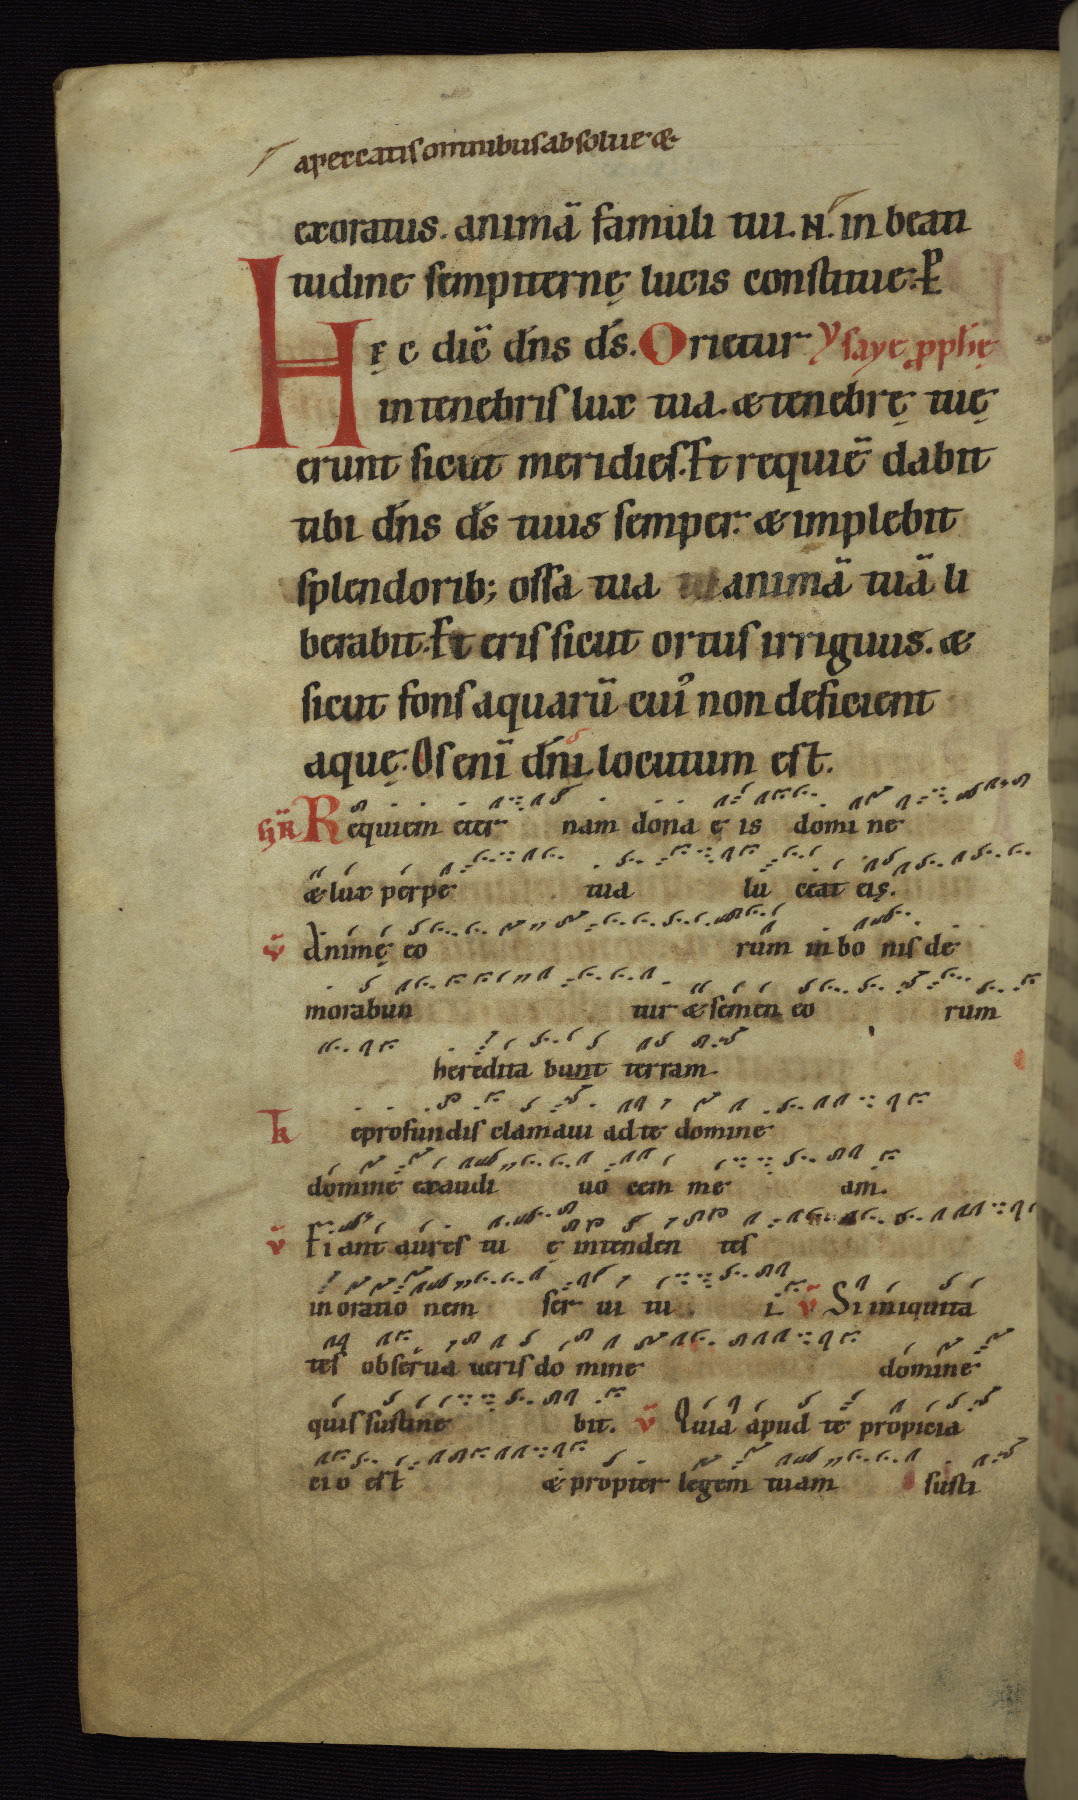 a peccatis omnibus absolue &
exoratus. animā famuli tui. N. in beati
tudine sempiternę lucis constitue. P
Hęc dic̄ dn̄s ds̄. Orietur Ysaye pphę
in tenebris lux tua. & tenebrę tuę
erunt sicut meridies. Et requiē dabit
tibi dn̄s ds̄ tuus semper. & implebit
splendorib; ossa tua animā tuā li
berabit. Et eris sicut ortus irriguus. &
sicut fons aquarū cui' non deficient
aquę. Os enī dn̄i locutum est.
GR Requiem eter nam dona e is domi ne
& lux perpe tua lu ceat eis.
v̄ Animę eo rum in bo nis de
morabun tur & semen eo rum
heredita bunt terram.
eprofundis clamaui ad te domine
domine exaudi uo cem me am.
v̄ Fi ant aures tu ę intenden tes
in oratio nem ser ui tu i. v̄ Si iniquita
tes obserua ueris do mine domine
quis sustine bit. v̄ Quia apud te propicia
ci o est & propter legem tuam susti